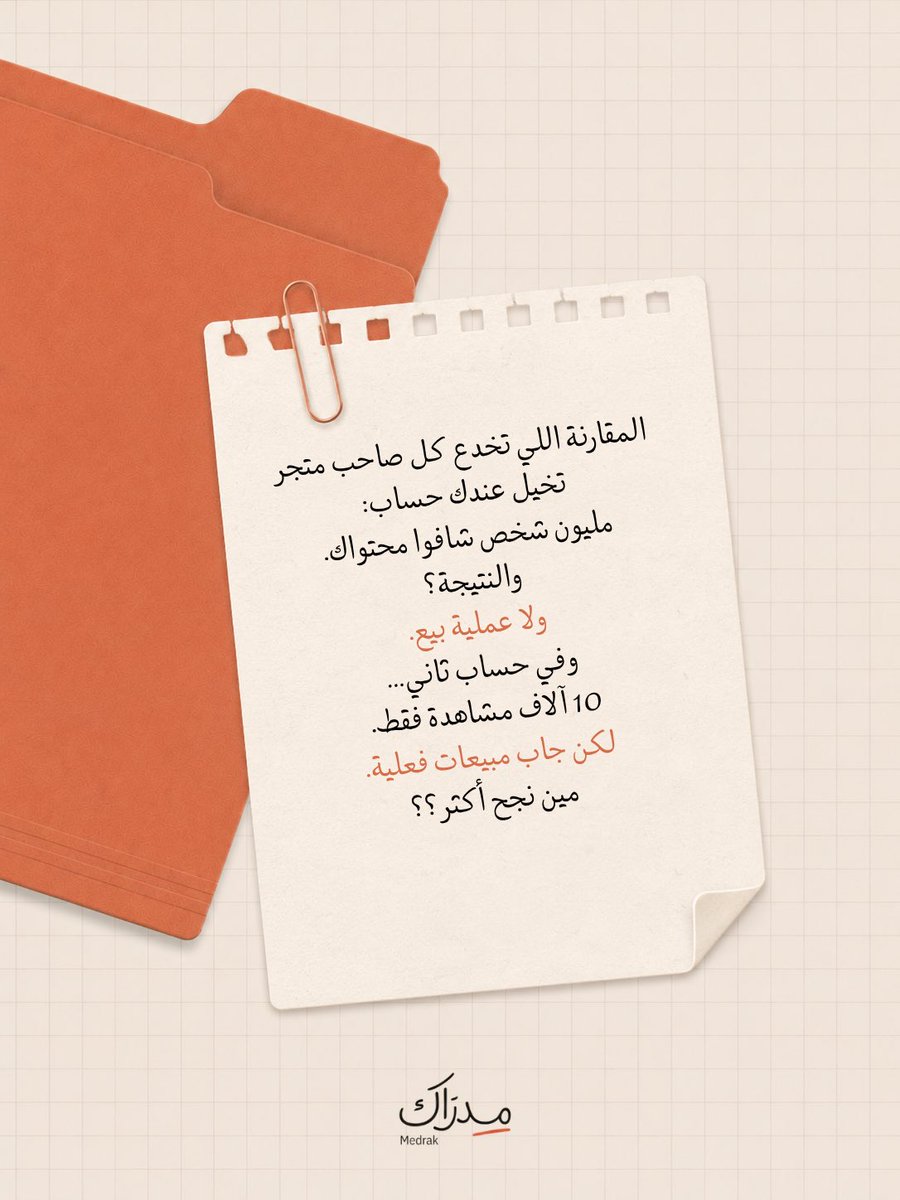 المقارنة اللي تخدع كل صاحب متجر
تخيل عندك حساب:
مليون شخص شافوا محتواك.
والنتيجة؟
ولا عملية بيع.
وفي حساب ثاني...
10 آلاف مشاهدة فقط.
لكن جاب مبيعات فعلية.
مين نجح أكثر ؟؟
مدرَاك
Medrak